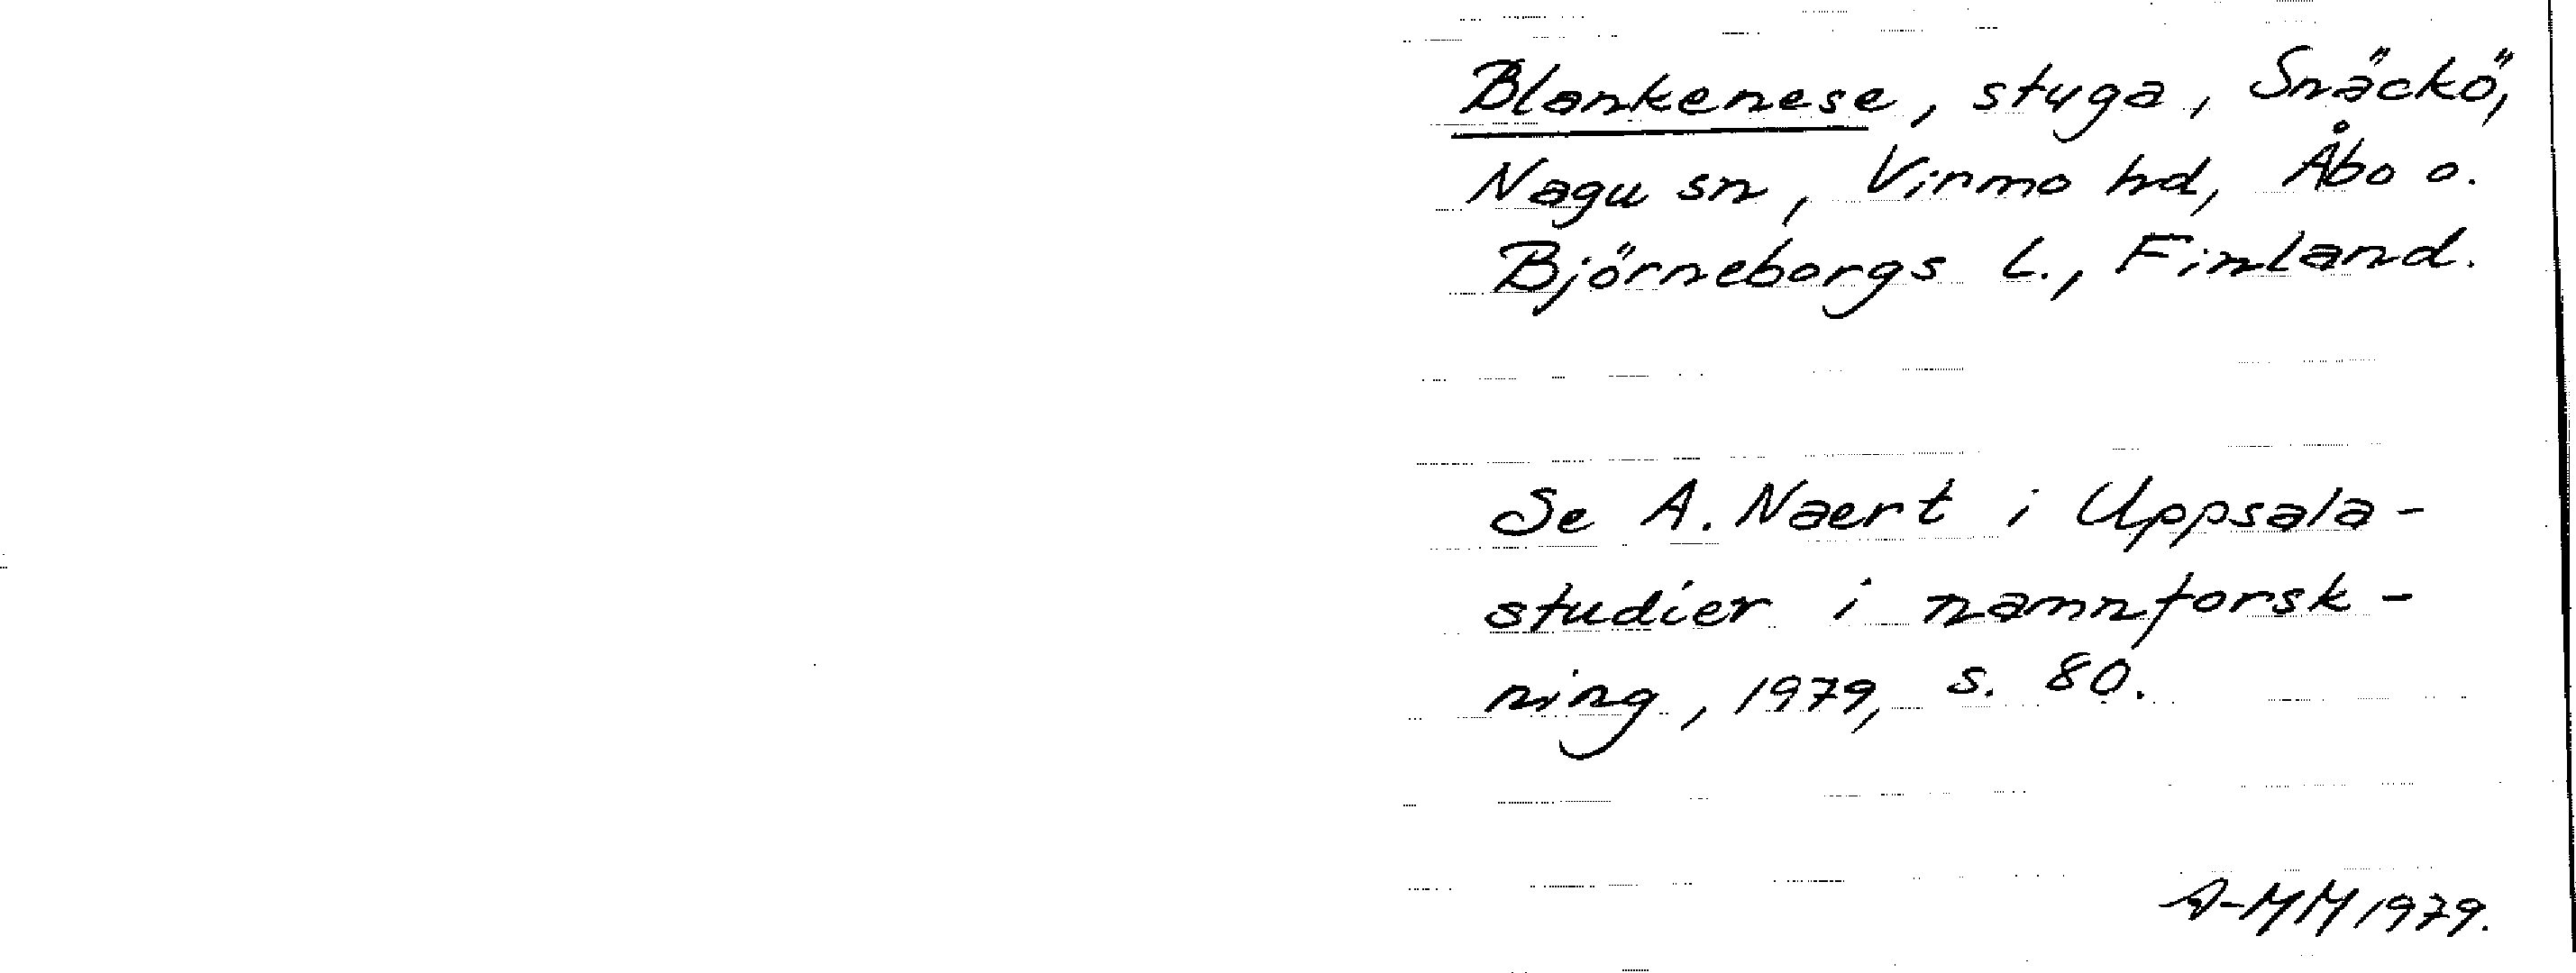 Blankenese, stuga, Snäckö,
Nagu sn, Virmo hd, Åbo o.
Björneborgs l., Finland.
Se A. Naert i Uppsala-
studier i namnforsk-
ning, 1979, s. 80.
A-MM 1979.